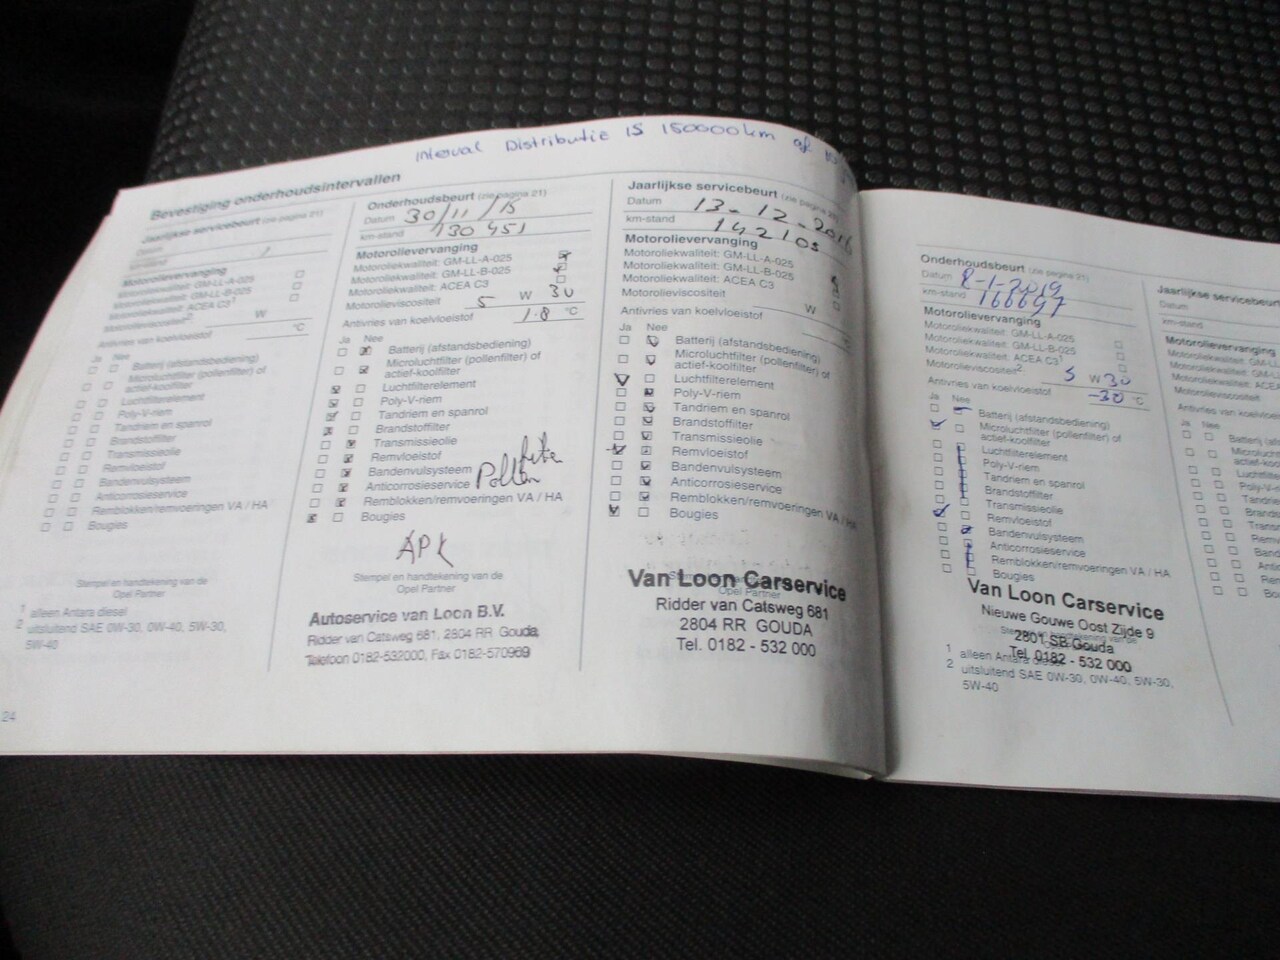 Interval Distributie is 150000km of 10
Bevestiging onderhoudsintervallen
Jaarlijkse servicebeurt (zie pagina 21)
Datum
km-stand
Motorolievervanging
Motoroliekwaliteit: GM-LL-A-025
Motoroliekwaliteit: GM-LL-B-025
Motoroliekwaliteit: ACEA C3¹
Motorolieviscositeit² W
Antivries van koelvloeistof °C
Ja Nee
Batterij (afstandsbediening)
Microluchtfilter (pollenfilter) of
actief-koolfilter
Luchtfilterelement
Poly-V-riem
Tandriem en spanrol
Brandstoffilter
Transmissieolie
Remvloeistof
Bandenvulsysteem
Anticorrosieservice
Remblokken/remvoeringen VA / HA
Bougies
Stempel en handtekening van de
Opel Partner
1 alleen Antara diesel
2 uitsluitend SAE 0W-30, 0W-40, 5W-30,
5W-40
24
Onderhoudsbeurt (zie pagina 21)
Datum 30/11/15
km-stand 130451
Motorolievervanging
Motoroliekwaliteit: GM-LL-A-025
Motoroliekwaliteit: GM-LL-B-025
Motoroliekwaliteit: ACEA C3
Motorolieviscositeit 5 W 30
Antivries van koelvloeistof -18 °C
Ja Nee
Batterij (afstandsbediening)
Microluchtfilter (pollenfilter) of
actief-koolfilter
Luchtfilterelement
Poly-V-riem
Tandriem en spanrol
Brandstoffilter
Transmissieolie
Remvloeistof
Bandenvulsysteem
Anticorrosieservice
Pollen
Remblokken/remvoeringen VA / HA
Bougies
APK
Stempel en handtekening van de
Opel Partner
Autoservice van Loon B.V.
Ridder van Catsweg 681, 2804 RR Gouda,
Telefoon 0182-532000, Fax 0182-570969
Jaarlijkse servicebeurt (zie pagina 21)
Datum 13-12-2016
km-stand 142108
Motorolievervanging
Motoroliekwaliteit: GM-LL-A-025
Motoroliekwaliteit: GM-LL-B-025
Motoroliekwaliteit: ACEA C3
Motorolieviscositeit W
Antivries van koelvloeistof °C
Ja Nee
Batterij (afstandsbediening)
Microluchtfilter (pollenfilter) of
actief-koolfilter
Luchtfilterelement
Poly-V-riem
Tandriem en spanrol
Brandstoffilter
Transmissieolie
Remvloeistof
Bandenvulsysteem
Anticorrosieservice
Remblokken/remvoeringen VA / HA
Bougies
Opel Partner
Van Loon Carservice
Ridder van Catsweg 681
2804 RR GOUDA
Tel. 0182 - 532 000
Onderhoudsbeurt (zie pagina 21)
Datum 8-1-2019
km-stand 166697
Motorolievervanging
Motoroliekwaliteit: GM-LL-A-025
Motoroliekwaliteit: GM-LL-B-025
Motoroliekwaliteit: ACEA C3¹
Motorolieviscositeit² 5 W 30
Antivries van koelvloeistof -30 °C
Ja Nee
Batterij (afstandsbediening)
Microluchtfilter (pollenfilter) of
actief-koolfilter
Luchtfilterelement
Poly-V-riem
Tandriem en spanrol
Brandstoffilter
Transmissieolie
Remvloeistof
Bandenvulsysteem
Anticorrosieservice
Remblokken/remvoeringen VA / HA
Bougies
Van Loon Carservice
Nieuwe Gouwe Oost Zijde 9
2801 SB Gouda
Tel. 0182 - 532 000
1 alleen Antara diesel
2 uitsluitend SAE 0W-30, 0W-40, 5W-30,
5W-40
Jaarlijkse servicebeurt
Datum
km-stand
Motorolievervanging
Motoroliekwaliteit: GM-LL
Motoroliekwaliteit: GM-L
Motoroliekwaliteit: ACEA
Motorolieviscositeit
Antivries van koelvloeist
Ja Nee
Batterij (af
Microlucht
actief-koo
Luchtfilte
Poly-V-r
Tandrie
Brands
Trans
Remv
Band
Antic
Rem
Bo